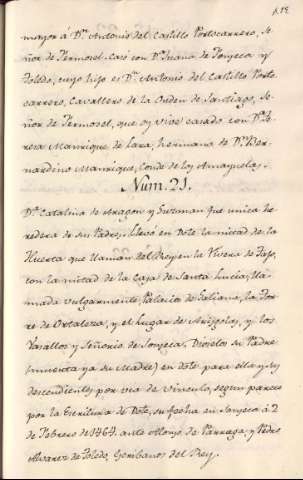 mayor á Dn. Antonio del Castillo Portocarrero, Se-
ñor de Fermosel. Casó con Da. Juana de Fonseca y
Toledo, cuyo hijo es Dn. Antonio del Castillo Porto-
carrero, Cavallero de la Orden de Santiago, Se-
ñor de Fermosel, que oy vive casado con Da. Te-
resa Manrrique de Lara, hermana de Dn. Ber-
nardino Manrique, Conde de los Amayuelas.
Num. 21.
Da. Catalina de Aragon y Guzman fue unica he-
redera de sus Padres, llevó en Dote la mitad de la
Huerta que llaman del Rey en la Rivera de Tajo,
con la mitad de la Casa de Santa Lucia, lla-
mada vulgarmente, Palacio de Galiana, la Tor-
re de Ortaleza, y el Lugar de Arisgotas, y los
Vasallos y Señorio de Sonseca. Dioselos su Padre
(muerta ya su Madre) en dote para ella y sus
descendientes por via de Vinculo, segun parece
por la Escritura de Dote, su fecha en Sonseca á 2
de Febrero de 1464. ante Alonso de Parraga, y Pedro
Alvarez de Toledo, Escribanos del Rey.